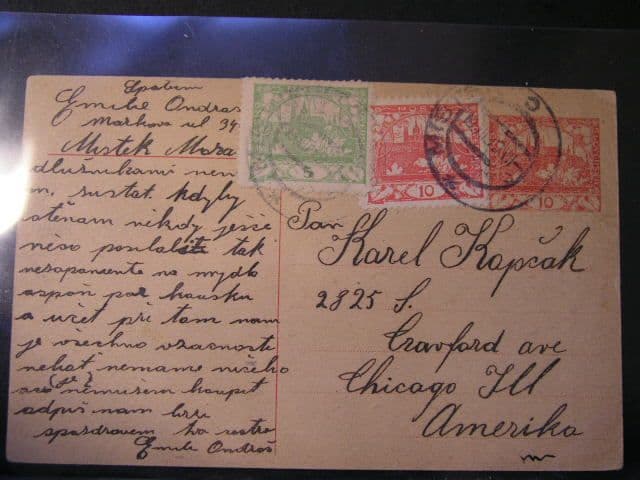 Emilie Ondraš
Markova ul 94
Mistek Mora
dlužnikami nem
kdyby
nikdy ješče
něco poslali tak
nezapomente na mydlo
aspoň par kousku
a učet při tom nam
je všechno vzacnosti
nebot nemame ničeho
nemužem koupit
adpiš nam brzi
spozdravem
Emilie Ondraš
5
10
10
MÍSTEK
Pan
Karel Kapčák
2825 S.
Crawford ave
Chicago Ill
Amerika